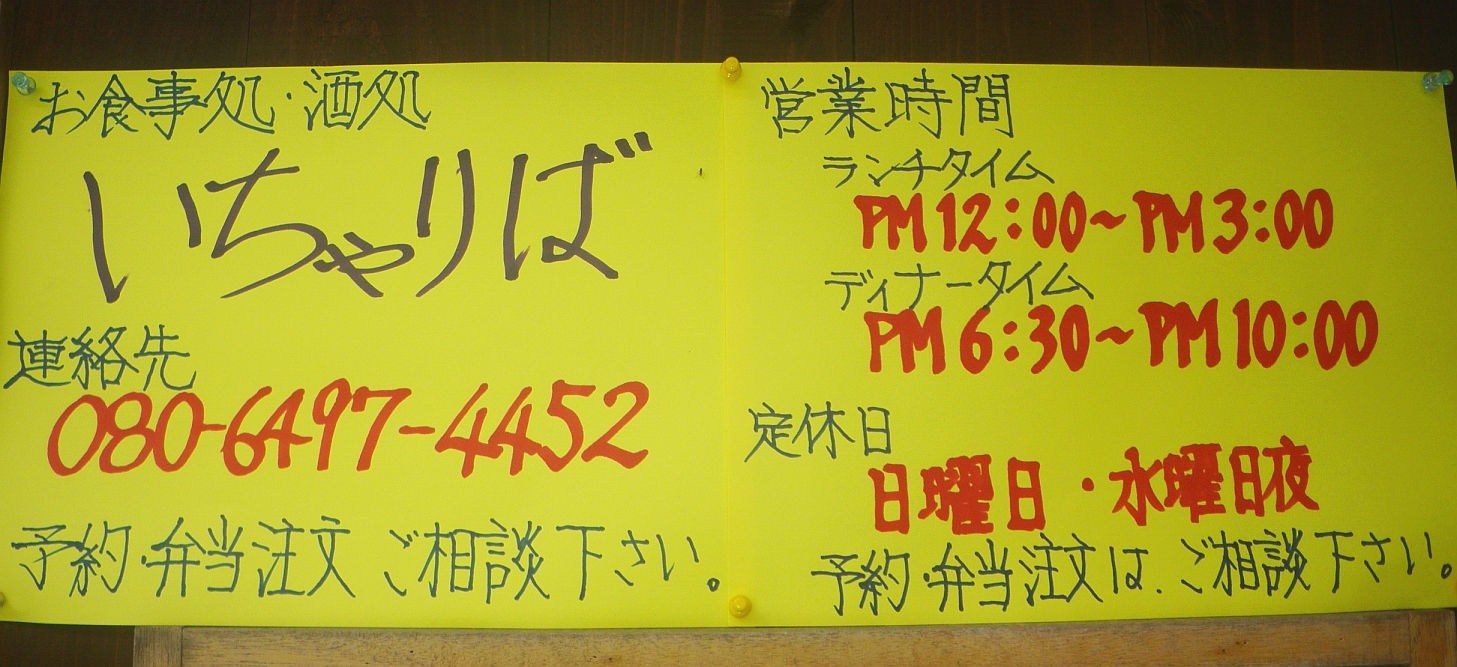 お食事処・酒処
いちゃりば
連絡先
080-6497-4452
予約・弁当注文 ご相談下さい。
営業時間
ランチタイム
PM12:00~PM3:00
ディナータイム
PM6:30~PM10:00
定休日
日曜日・水曜日夜
予約・弁当注文は、ご相談下さい。